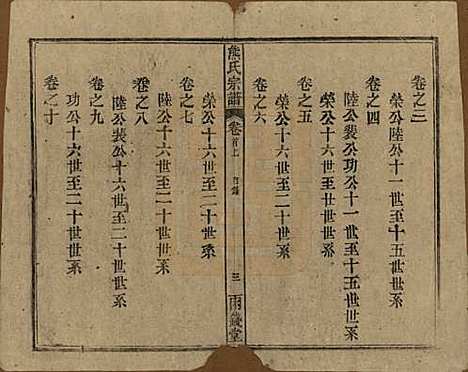 卷之三
榮公陸公十一世至十五世世系
卷之四
陸公裴公功公十一世至十五世世系
卷之五
榮公十六世至廿世世系
卷之六
榮公十六世至二十世世系
熊氏宗譜
卷首上
目錄
三
卷之七
榮公十六世至二十世世系
卷之八
陸公十六世至二十世世系
卷之九
陸公裴公十六世至二十世世系
卷之十
功公十六世至二十世世系